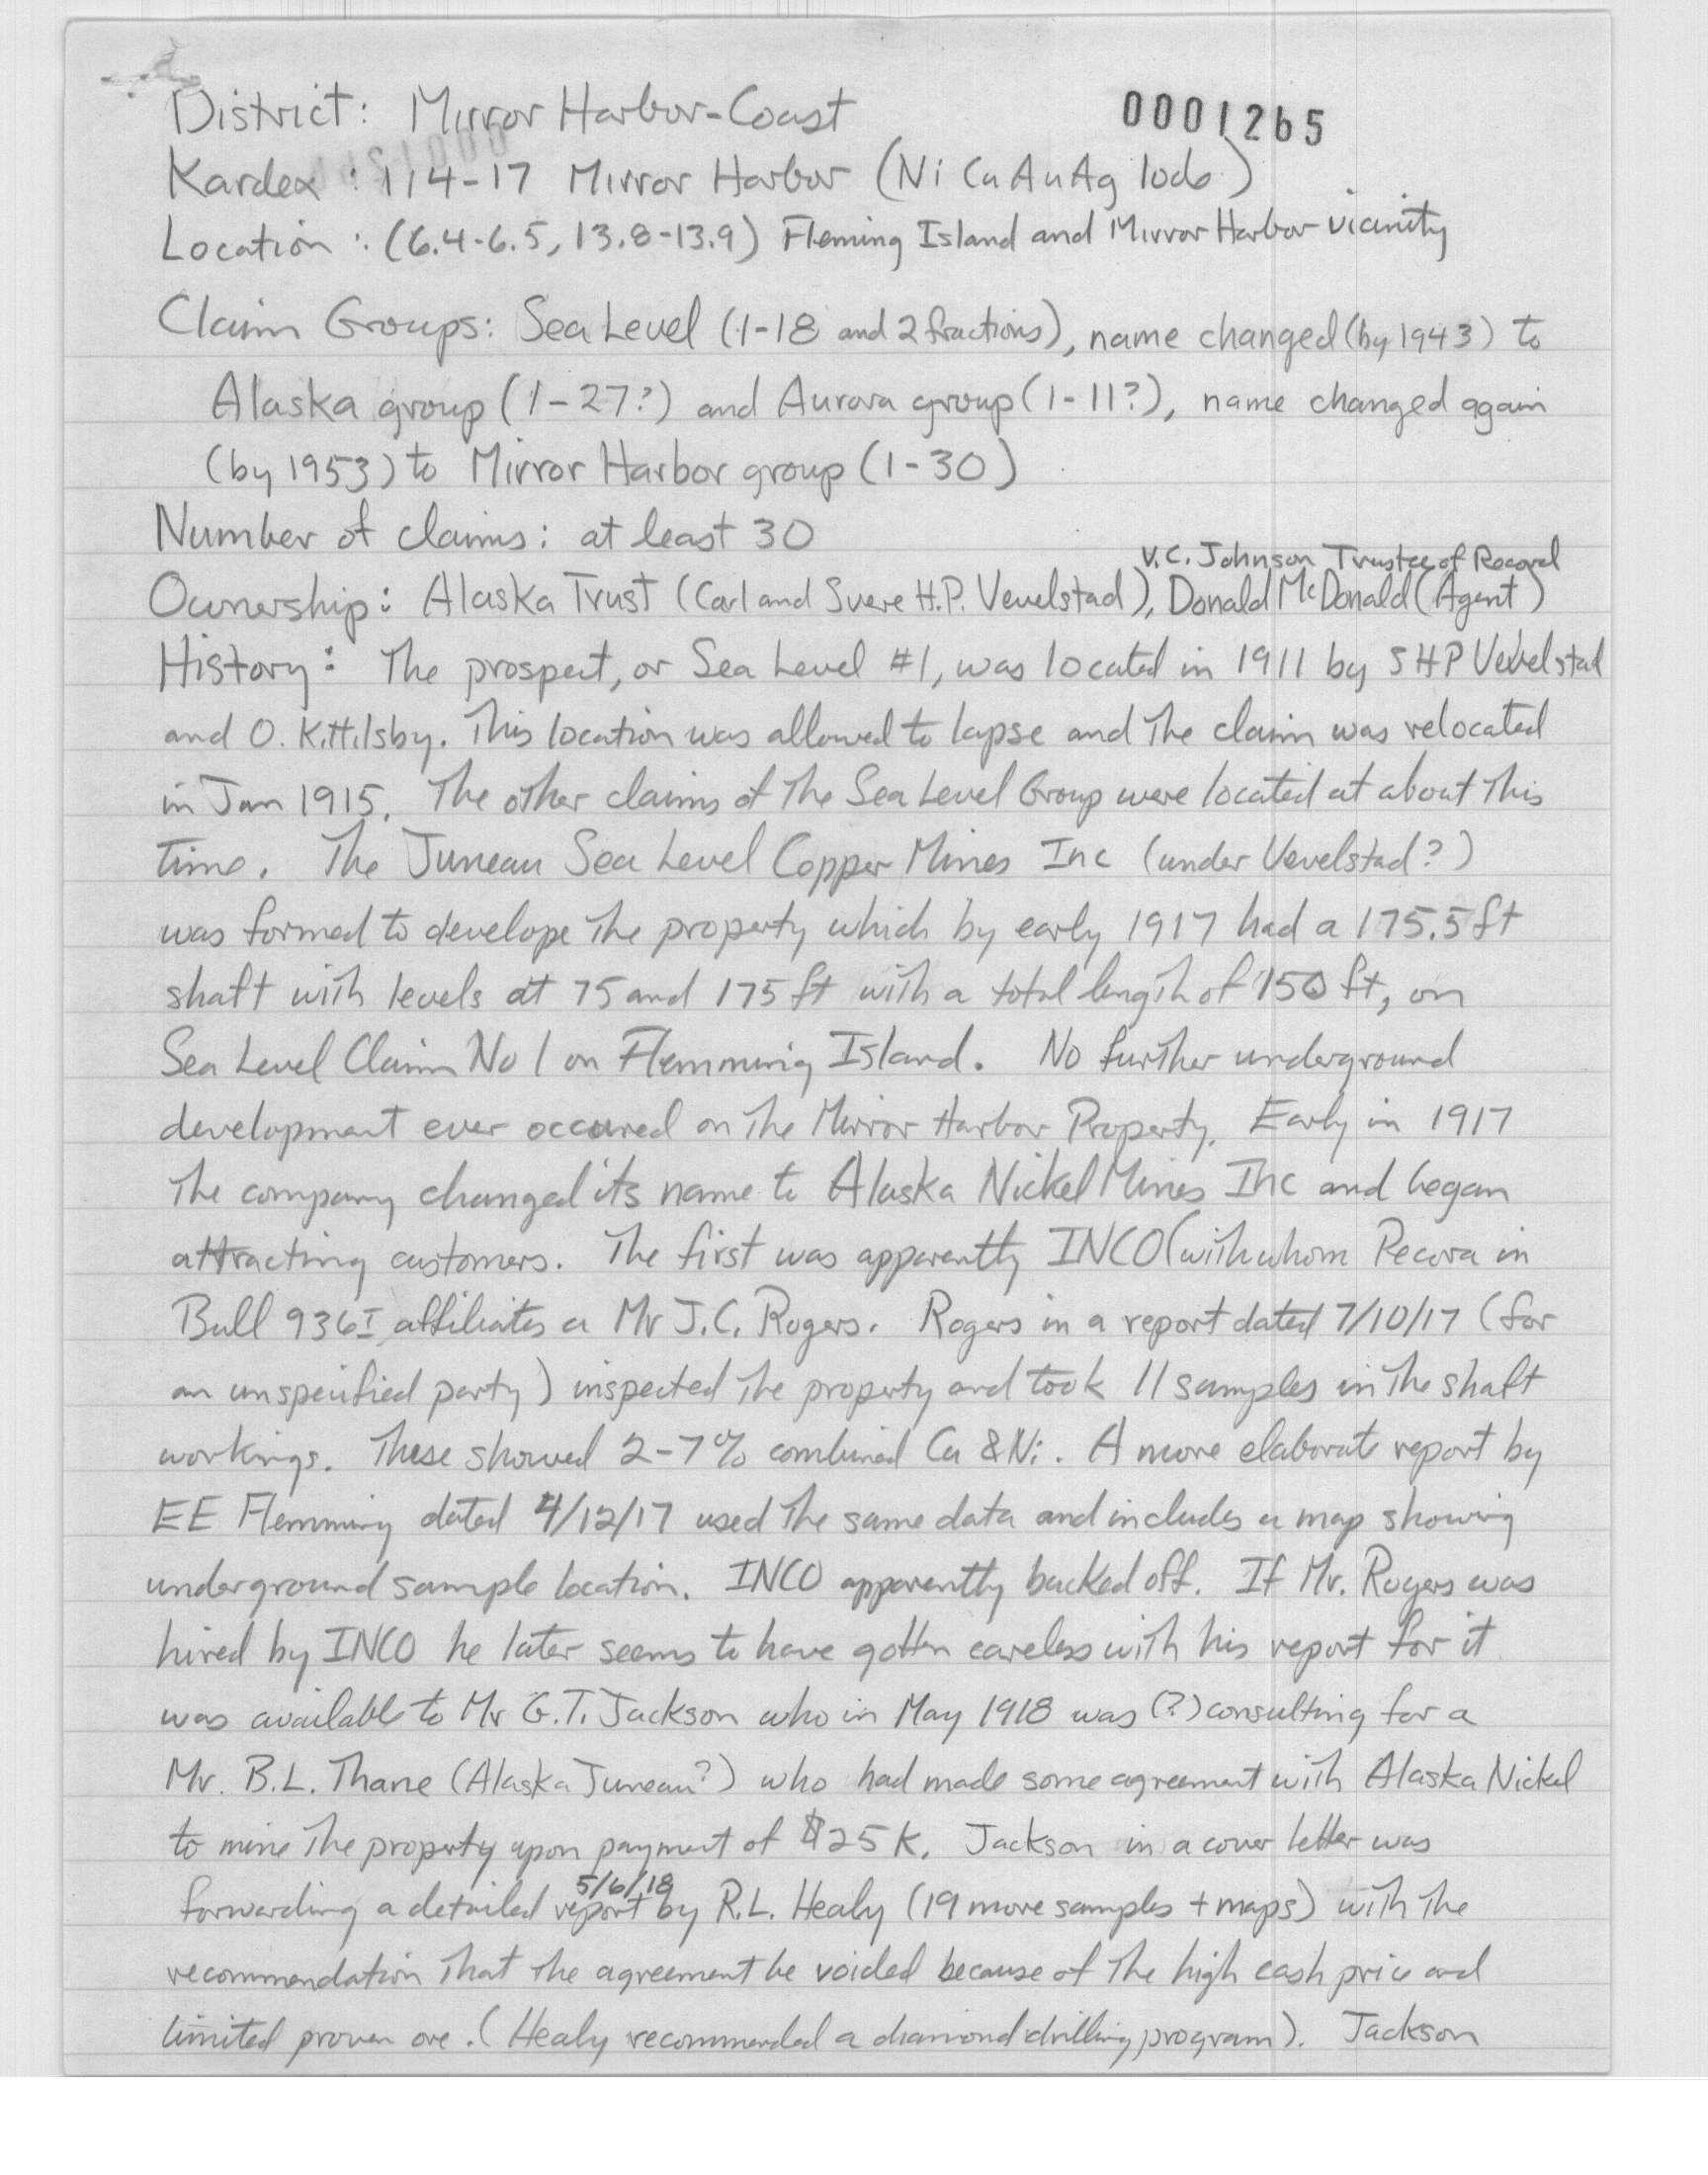 District: Mirror Harbor-Coast
0001265
Kardex : 114-17 Mirror Harbor (Ni Cu Au Ag lode)
Location : (6.4-6.5, 13.8-13.9) Fleming Island and Mirror Harbor vicinity
Claim Groups: Sea Level (1-18 and 2 fractions), name changed (by 1943) to
Alaska group (1-27?) and Aurora group (1-11?), name changed again
(by 1953) to Mirror Harbor group (1-30)
Number of claims: at least 30
V.C. Johnson Trustee of Record
Ownership: Alaska Trust (Carl and Svere H.P. Vevelstad), Donald McDonald (Agent)
History: The prospect, or Sea Level #1, was located in 1911 by SHP Vevelstad
and O. Kittilsby. This location was allowed to lapse and the claim was relocated
in Jan 1915. The other claims of the Sea Level Group were located at about this
time. The Juneau Sea Level Copper Mines Inc (under Vevelstad?)
was formed to develope the property which by early 1917 had a 175.5 ft
shaft with levels at 75 and 175 ft with a total length of 150 ft, on
Sea Level Claim No 1 on Flemming Island. No further underground
development ever occured on the Mirror Harbor Property. Early in 1917
the company changed its name to Alaska Nickel Mines Inc and began
attracting customers. The first was apparently INCO (with whom Pecora in
Bull 936I affiliates a Mr J.C. Rogers. Rogers in a report dated 7/10/17 (for
an unspecified party) inspected the property and took 11 samples in the shaft
workings. These showed 2-7% combined Cu & Ni. A more elaborate report by
EE Flemming dated 4/12/17 used the same data and includes a map showing
underground sample location. INCO apparently backed off. If Mr. Rogers was
hired by INCO he later seems to have gotten careless with his report for it
was available to Mr G.T. Jackson who in May 1918 was (?) consulting for a
Mr. B.L. Thane (Alaska Juneau?) who had made some agreement with Alaska Nickel
to mine the property upon payment of $25K. Jackson in a cover letter was
5/6/18
forwarding a detailed report by R.L. Healy (19 more samples + maps) with the
recommendation that the agreement be voided because of the high cash price and
limited proven ore. (Healy recommended a diamond drilling program). Jackson